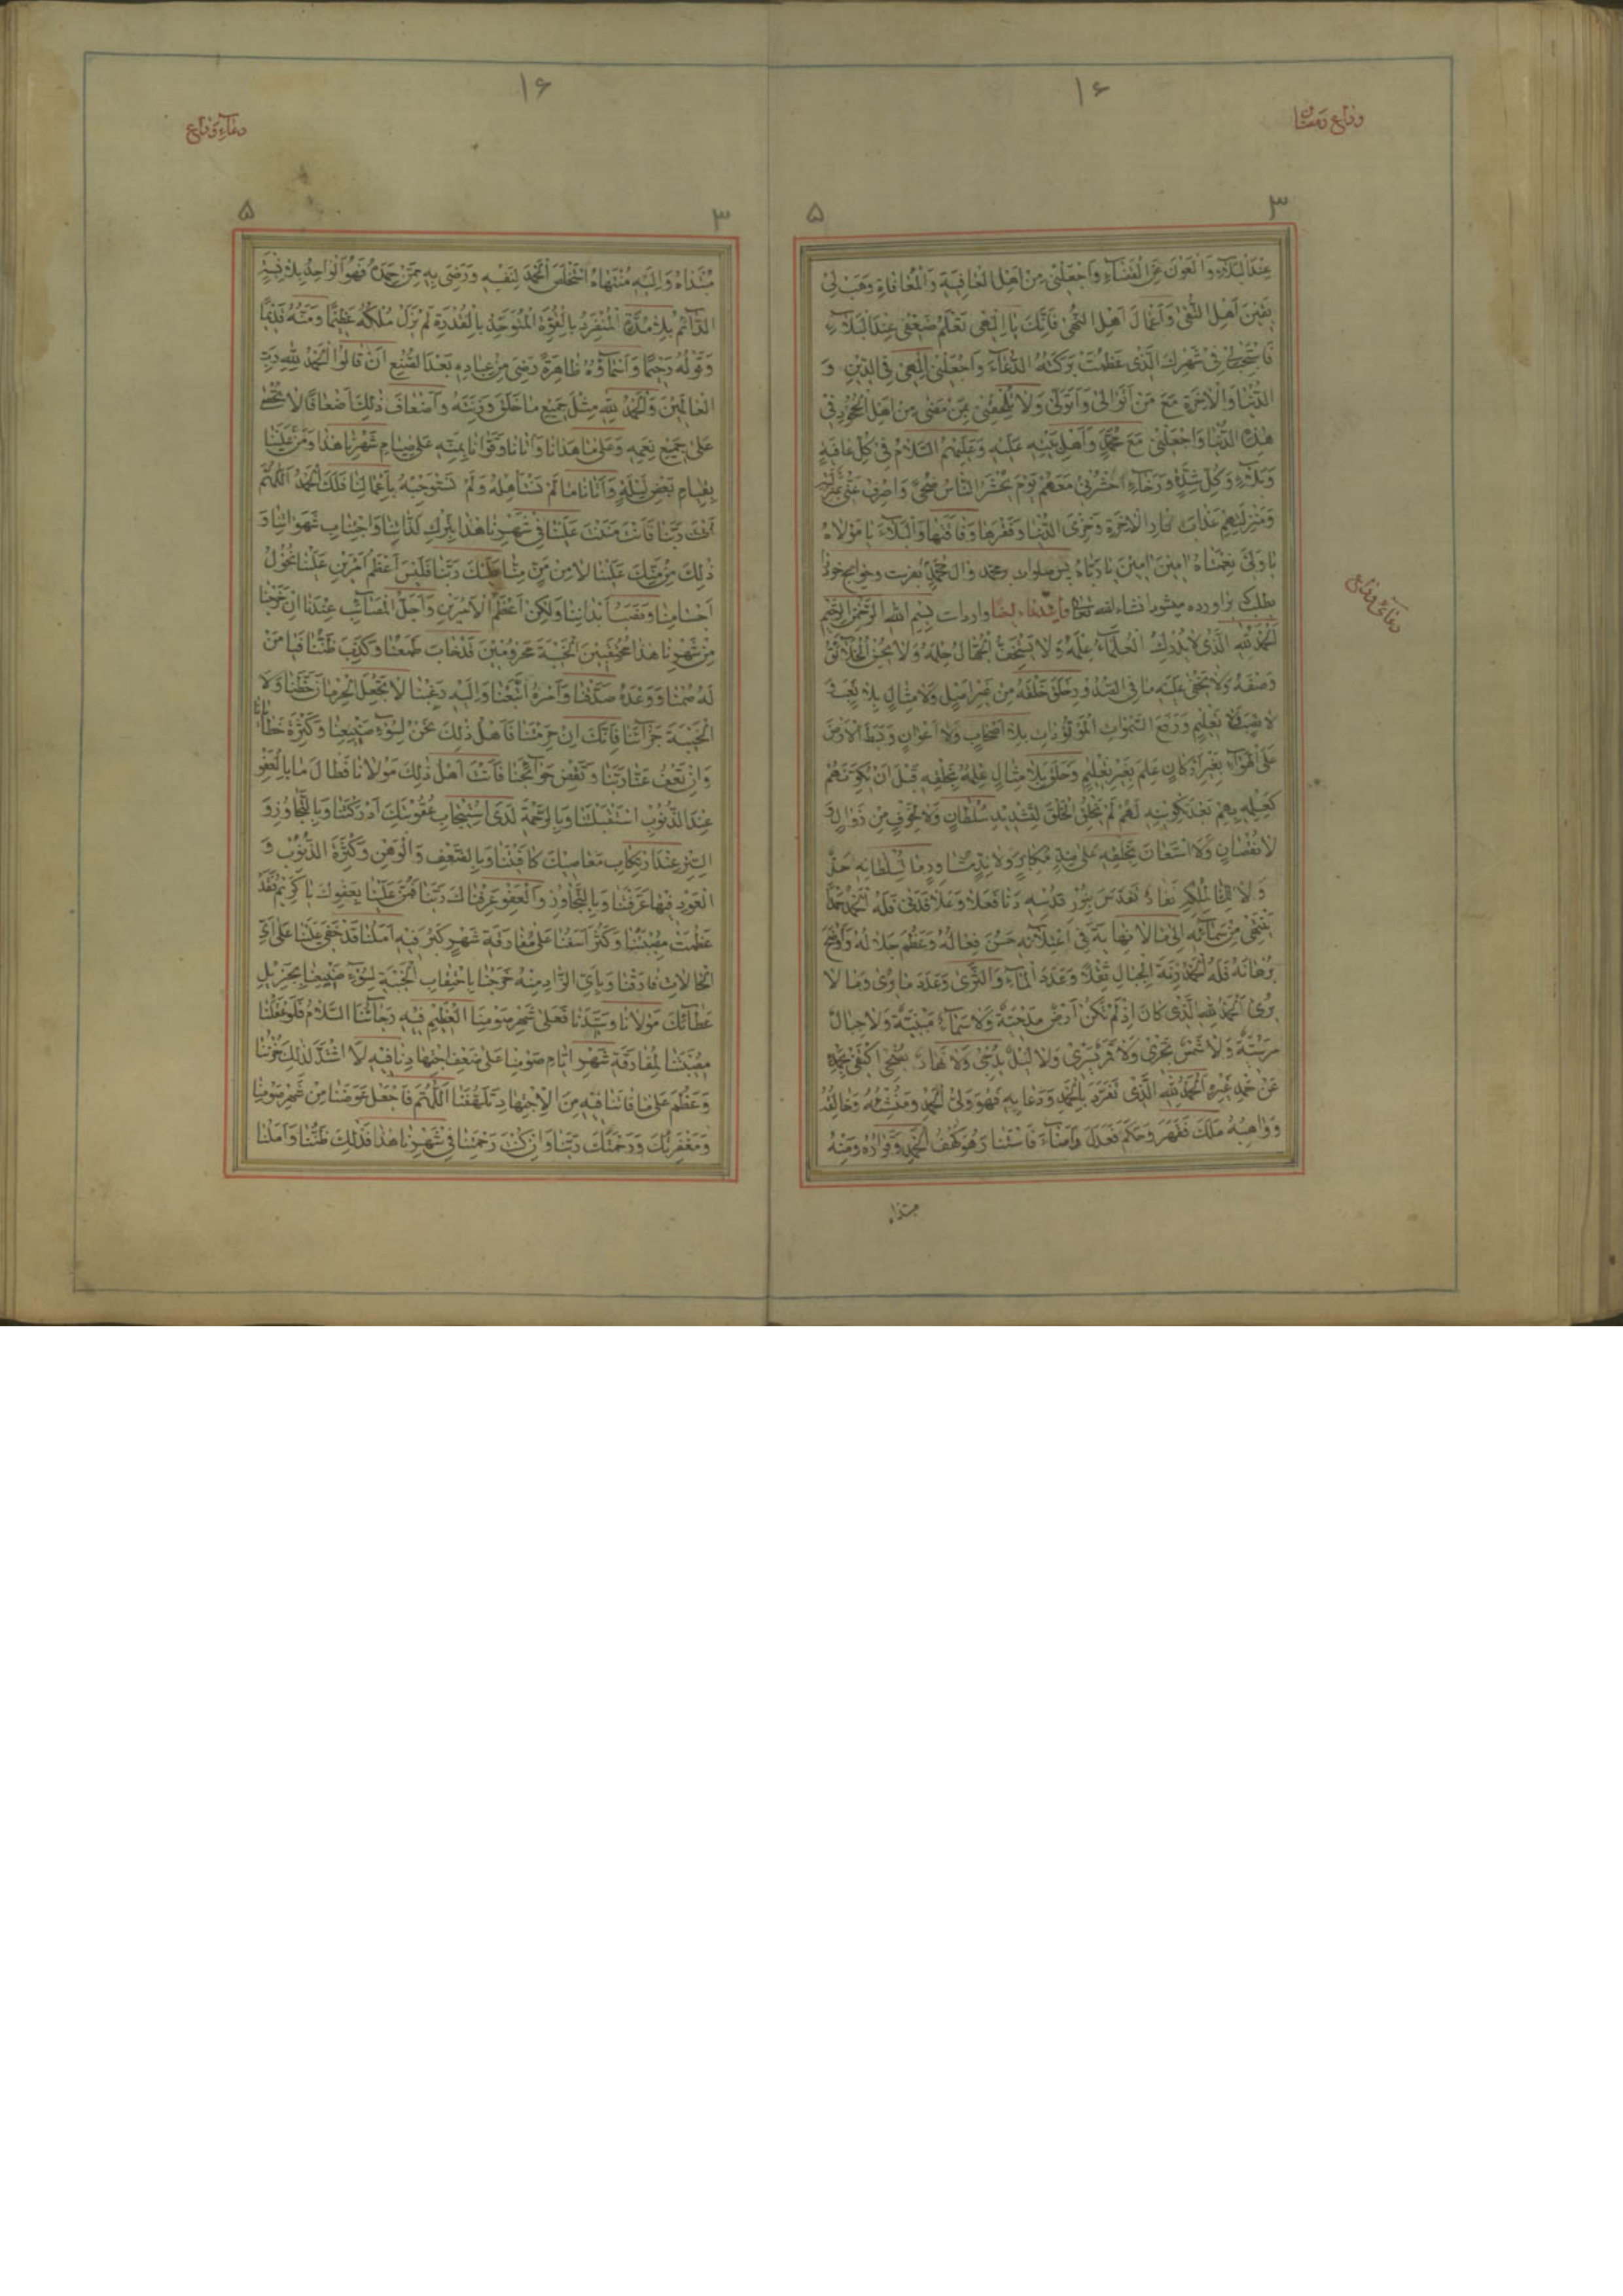 ۱۶
وداع رمضان
۳
۵
عِنْدَ الْبَلَاءِ وَالْعَوْنَ عِنْدَ الْقَضَاءِ وَاجْعَلْنِى مِنْ اَهْلِ الْعَافِيَةِ وَالْمُعَافَاةِ وَهَبْ لِى
يَقِينَ اَهْلِ التُّقٰى وَاَعْمَالَ اَهْلِ النُّهٰى فَاِنَّكَ يَا اِلٰهِى تَعْلَمُ ضَعْفِى عِنْدَ الْبَلَاءِ
فَاسْتَجِبْ لِى فِى شَهْرِكَ الَّذِى عَظَّمْتَ بَرَكَتَهُ الدُّعَاءَ وَاجْعَلْنِى اِلٰهِى فِى الدِّيْنِ وَ
الدُّنْيَا وَالْاٰخِرَةِ مَعَ مَنْ اَتَوَالٰى وَاَتَوَلّٰى وَلَا تُلْحِقْنِى بِمَنْ مَضٰى مِنْ اَهْلِ الْجُحُودِ فِى
هٰذِهِ الدُّنْيَا وَاجْعَلْنِى مَعَ مُحَمَّدٍ وَاَهْلِ بَيْتِهِ عَلَيْهِ وَعَلَيْهِمُ السَّلَامُ فِى كُلِّ عَافِيَةٍ
وَبَلَاءٍ وَكُلِّ شِدَّةٍ وَرَخَاءٍ اُحْشُرْنِى مَعَهُمْ يَوْمَ يُحْشَرُ النَّاسُ ضُحًى وَاصْرِفْ عَنِّى
عَذَابَ الْاٰخِرَةِ وَخِزْىَ الدُّنْيَا وَفَقْرَهَا وَفَاقَتَهَا وَالْبَلَاءَ يَا مَوْلَاهُ
يَا وَلِىَّ نِعْمَتَاهُ اٰمِيْنَ اٰمِيْنَ يَا رَبَّاهُ پس صلوات بر محمد و ال محمد بفرست وحوايج خود
بطلب بر اورده ميشود انشاء الله تعالى بِسْمِ اللهِ الرَّحْمٰنِ الرَّحِيْمِ
اَلْحَمْدُ لِلّٰهِ الَّذِى لَا يُدْرِكُ الْعُلَمَاءُ عِلْمَهُ وَلَا يَسْتَخِفُّ الْجُهَّالُ حِلْمَهُ وَلَا يُحْسِنُ الْخَلَائِقُ
وَصْفَهُ وَلَا يَخْفٰى عَلَيْهِ مَا فِى الصُّدُورِ خَلَقَ خَلْقَهُ مِنْ غَيْرِ اَصْلٍ وَلَا مِثَالٍ بِلَا تَعَبٍ وَ
لَا تَعْلِيمٍ وَرَفَعَ السَّمٰوَاتِ الْمَوْقُوْدَاتِ بِلَا اَصْحَابٍ وَلَا اَعْوَانٍ وَبَسَطَ الْاَرْضَ
عَلَى الْهَوَاءِ بِغَيْرِ اَرْكَانٍ عَلِمَ بِغَيْرِ تَعْلِيمٍ وَخَلَقَ بِلَا مِثَالٍ عِلْمُهُ بِخَلْقِهِ قَبْلَ اَنْ يُكَوِّنَهُمْ
كَعِلْمِهِ بِهِمْ بَعْدَ تَكْوِيْنِهِ لَهُمْ لَمْ يَخْلُقِ الْخَلْقَ لِتَشْدِيْدِ سُلْطَانٍ وَلَا لِخَوْفٍ مِنْ زَوَالٍ وَ
لَا نُقْصَانٍ وَلَا اسْتَعَانَ بِخَلْقِهِ عَلٰى ضِدٍّ مُكَابِرٍ وَلَا نِدٍّ مُثَاوِرٍ
يَنْتَهِى مِنْ سَمَائِهِ اِلٰى مَا لَا نِهَايَةَ فِى اعْتِلَائِهِ حَسُنَ فِعَالُهُ وَعَظُمَ جَلَالُهُ وَاَوْضَحَ
بُرْهَانَهُ فَلَهُ الْحَمْدُ زِنَةَ الْجِبَالِ ثِقْلًا وَعَدَدَ الْمَاءِ وَالثَّرٰى وَعَدَدَ مَا يُرٰى وَمَا لَا
يُرٰى اَلْحَمْدُ لِلّٰهِ الَّذِى كَانَ اِذْ لَمْ تَكُنْ اَرْضٌ مَدْحِيَّةٌ وَلَا سَمَاءٌ مَبْنِيَّةٌ وَلَا جِبَالٌ
مُرْسِيَةٌ وَلَا شَمْسٌ تَجْرِى وَلَا قَمَرٌ يَسْرِى وَلَا لَيْلٌ يُدْجٰى وَلَا نَهَارٌ يُضْحٰى اكْتَفٰى بِحَمْدِهِ
عَنْ حَمْدِ غَيْرِهِ اَلْحَمْدُ لِلّٰهِ الَّذِى تَفَرَّدَ بِالْحَمْدِ وَدَعَا بِهِ فَهُوَ وَلِىُّ الْحَمْدِ وَمُنْشِئُهُ وَخَالِقُهُ
وَوَاهِبُهُ مَلَكَ فَقَهَرَ وَحَكَمَ فَعَدَلَ وَاَضَاءَ فَاسْتَنَارَ هُوَ كَهْفُ الْحَمْدِ وَقَرَارُهُ وَمِنْهُ
مبتداه
دعاى وداع
۱۶
دعاء وداع
۳
۵
مُبْتَدَاهُ وَاِلَيْهِ مُنْتَهَاهُ اسْتَخْلَصَ الْحَمْدَ لِنَفْسِهِ وَرَضِىَ بِهِ مِمَّنْ حَمِدَهُ فَهُوَ الْوَاحِدُ بِلَا نِسْبَةٍ
الدَّائِمُ بِلَا مُدَّةٍ الْمُنْفَرِدُ بِالْقُوَّةِ الْمُتَوَحِّدُ بِالْقُدْرَةِ لَمْ يَزَلْ مُلْكُهُ عَظِيمًا وَمَنُّهُ قَدِيْمًا
وَقَوْلُهُ رَحِيْمًا وَاَسْمَاؤُهُ ظَاهِرَةً رَضِىَ مِنْ عِبَادِهِ بَعْدَ الصُّنْعِ اَنْ قَالُوا الْحَمْدُ لِلّٰهِ رَبِّ
الْعَالَمِيْنَ وَالْحَمْدُ لِلّٰهِ مِثْلَ جَمِيْعِ مَا خَلَقَ وَزِنَتَهُ وَاَضْعَافَ ذٰلِكَ اَضْعَافًا لَا تُحْصٰى
عَلٰى جَمِيْعِ نِعَمِهِ وَعَلٰى مَا هَدَانَا وَاٰتَانَا وَقَوَّانَا بِمَنِّهِ عَلٰى صِيَامِ شَهْرِنَا هٰذَا وَمَنَّ عَلَيْنَا
بِقِيَامِ بَعْضِ لَيْلِهِ وَاٰتَانَا مَا لَمْ نَسْتَاْهِلْهُ وَلَمْ نَسْتَوْجِبْهُ بِاَعْمَالِنَا فَلَكَ الْحَمْدُ اَللّٰهُمَّ
اَنْتَ رَبُّنَا فَاَنْتَ مَنَنْتَ عَلَيْنَا فِى شَهْرِنَا هٰذَا بِتَرْكِ لَذَّاتِنَا وَاجْتِنَابِ شَهَوَاتِنَا وَ
ذٰلِكَ مِنْ مَنِّكَ عَلَيْنَا لَا مِنْ مَنِّ مِنَّا عَلَيْكَ رَبَّنَا فَلَيْسَ اَعْظَمَ اَمْرَيْنِ عَلَيْنَا نُحُوْلُ
اَجْسَامِنَا وَنَصَبُ اَبْدَانِنَا وَلٰكِنْ اَعْظَمُ الْاَمْرَيْنِ وَاَجَلُّ الْمَصَائِبِ عِنْدَنَا اَنْ خَرَجْنَا
مِنْ شَهْرِنَا هٰذَا الْخَيْبَةِ مَحْرُوْمِيْنَ قَدْ خَابَ طَمَعُنَا وَكَذَبَ ظَنُّنَا فَيَا مَنْ
لَهُ صُمْنَا وَوَعْدَهُ صَدَّقْنَا وَاَمْرَهُ اتَّبَعْنَا وَاِلَيْهِ رَغِبْنَا لَا تَجْعَلِ الْحِرْمَانَ حَظَّنَا وَلَا
الْخَيْبَةَ جَزَاءَنَا فَاِنَّكَ اِنْ حَرَمْتَنَا فَاَهْلُ ذٰلِكَ نَحْنُ لِسُوْءِ صَنِيْعِنَا وَكَثْرَةِ خَطَايَانَا
وَاِنْ تَعْفُ عَنَّا رَبَّنَا وَتَقْضِ حَوَائِجَنَا فَاَنْتَ اَهْلُ ذٰلِكَ مَوْلَانَا فَطَالَ مَا بِالْعَفْوِ
عِنْدَ الذُّنُوْبِ اسْتَقْبَلْتَنَا وَبِالرَّحْمَةِ لَدَى اسْتِيْجَابِ عُقُوْبَتِكَ اَدْرَكْتَنَا وَبِالتَّجَاوُزِ وَ
السَّتْرِ عِنْدَ ارْتِكَابِ مَعَاصِيْكَ كَافَيْتَنَا وَبِالضَّعْفِ وَالْوَهْنِ وَكَثْرَةِ الذُّنُوْبِ وَ
الْعَوْدِ فِيْهَا عَرَفْتَنَا وَبِالتَّجَاوُزِ وَالْعَفْوِ عَرَفْنَاكَ رَبَّنَا فَمُنَّ عَلَيْنَا بِعَفْوِكَ يَا كَرِيْمُ فَقَدْ
عَظُمَتْ مُصِيْبَتُنَا وَكَثُرَ اَسَفُنَا عَلٰى مُفَارَقَةِ شَهْرٍ كَبُرَ فِيْهِ اَمَلُنَا قَدْ خَفِىَ عَلَيْنَا عَلٰى اَىِّ
الْحَالَاتِ فَارَقَنَا وَبِاَىِّ الزَّادِ مِنْهُ خَرَجْنَا بِاحْتِقَابِ الْخَيْبَةِ لِسُوْءِ صَنِيْعِنَا بِجَزِيْلِ
عَطَائِكَ مَوْلَانَا وَسَيِّدَنَا فَعَلٰى شَهْرِ صَوْمِنَا الْعَظِيْمِ فِيْهِ رَجَاؤُنَا السَّلَامُ فَلَوْ عَقَلْنَا
مُصِيْبَتَنَا لِمُفَارَقَةِ شَهْرِ اَيَّامِ صَوْمِنَا عَلٰى ضَعْفِ اجْتِهَادِنَا فِيْهِ لَاشْتَدَّ لِذٰلِكَ حُزْنُنَا
وَعَظُمَ عَلٰى مَا فَاتَنَا فِيْهِ مِنَ الْاِجْتِهَادِ تَلَهُّفُنَا اَللّٰهُمَّ فَاجْعَلْ عِوَضَنَا مِنْ شَهْرِ صَوْمِنَا
وَمَغْفِرَتَكَ وَرَحْمَتَكَ رَبَّنَا وَاِنْ كُنْتَ رَحِمْتَنَا فِى شَهْرِنَا هٰذَا فَذٰلِكَ ظَنُّنَا وَاَمَلُنَا